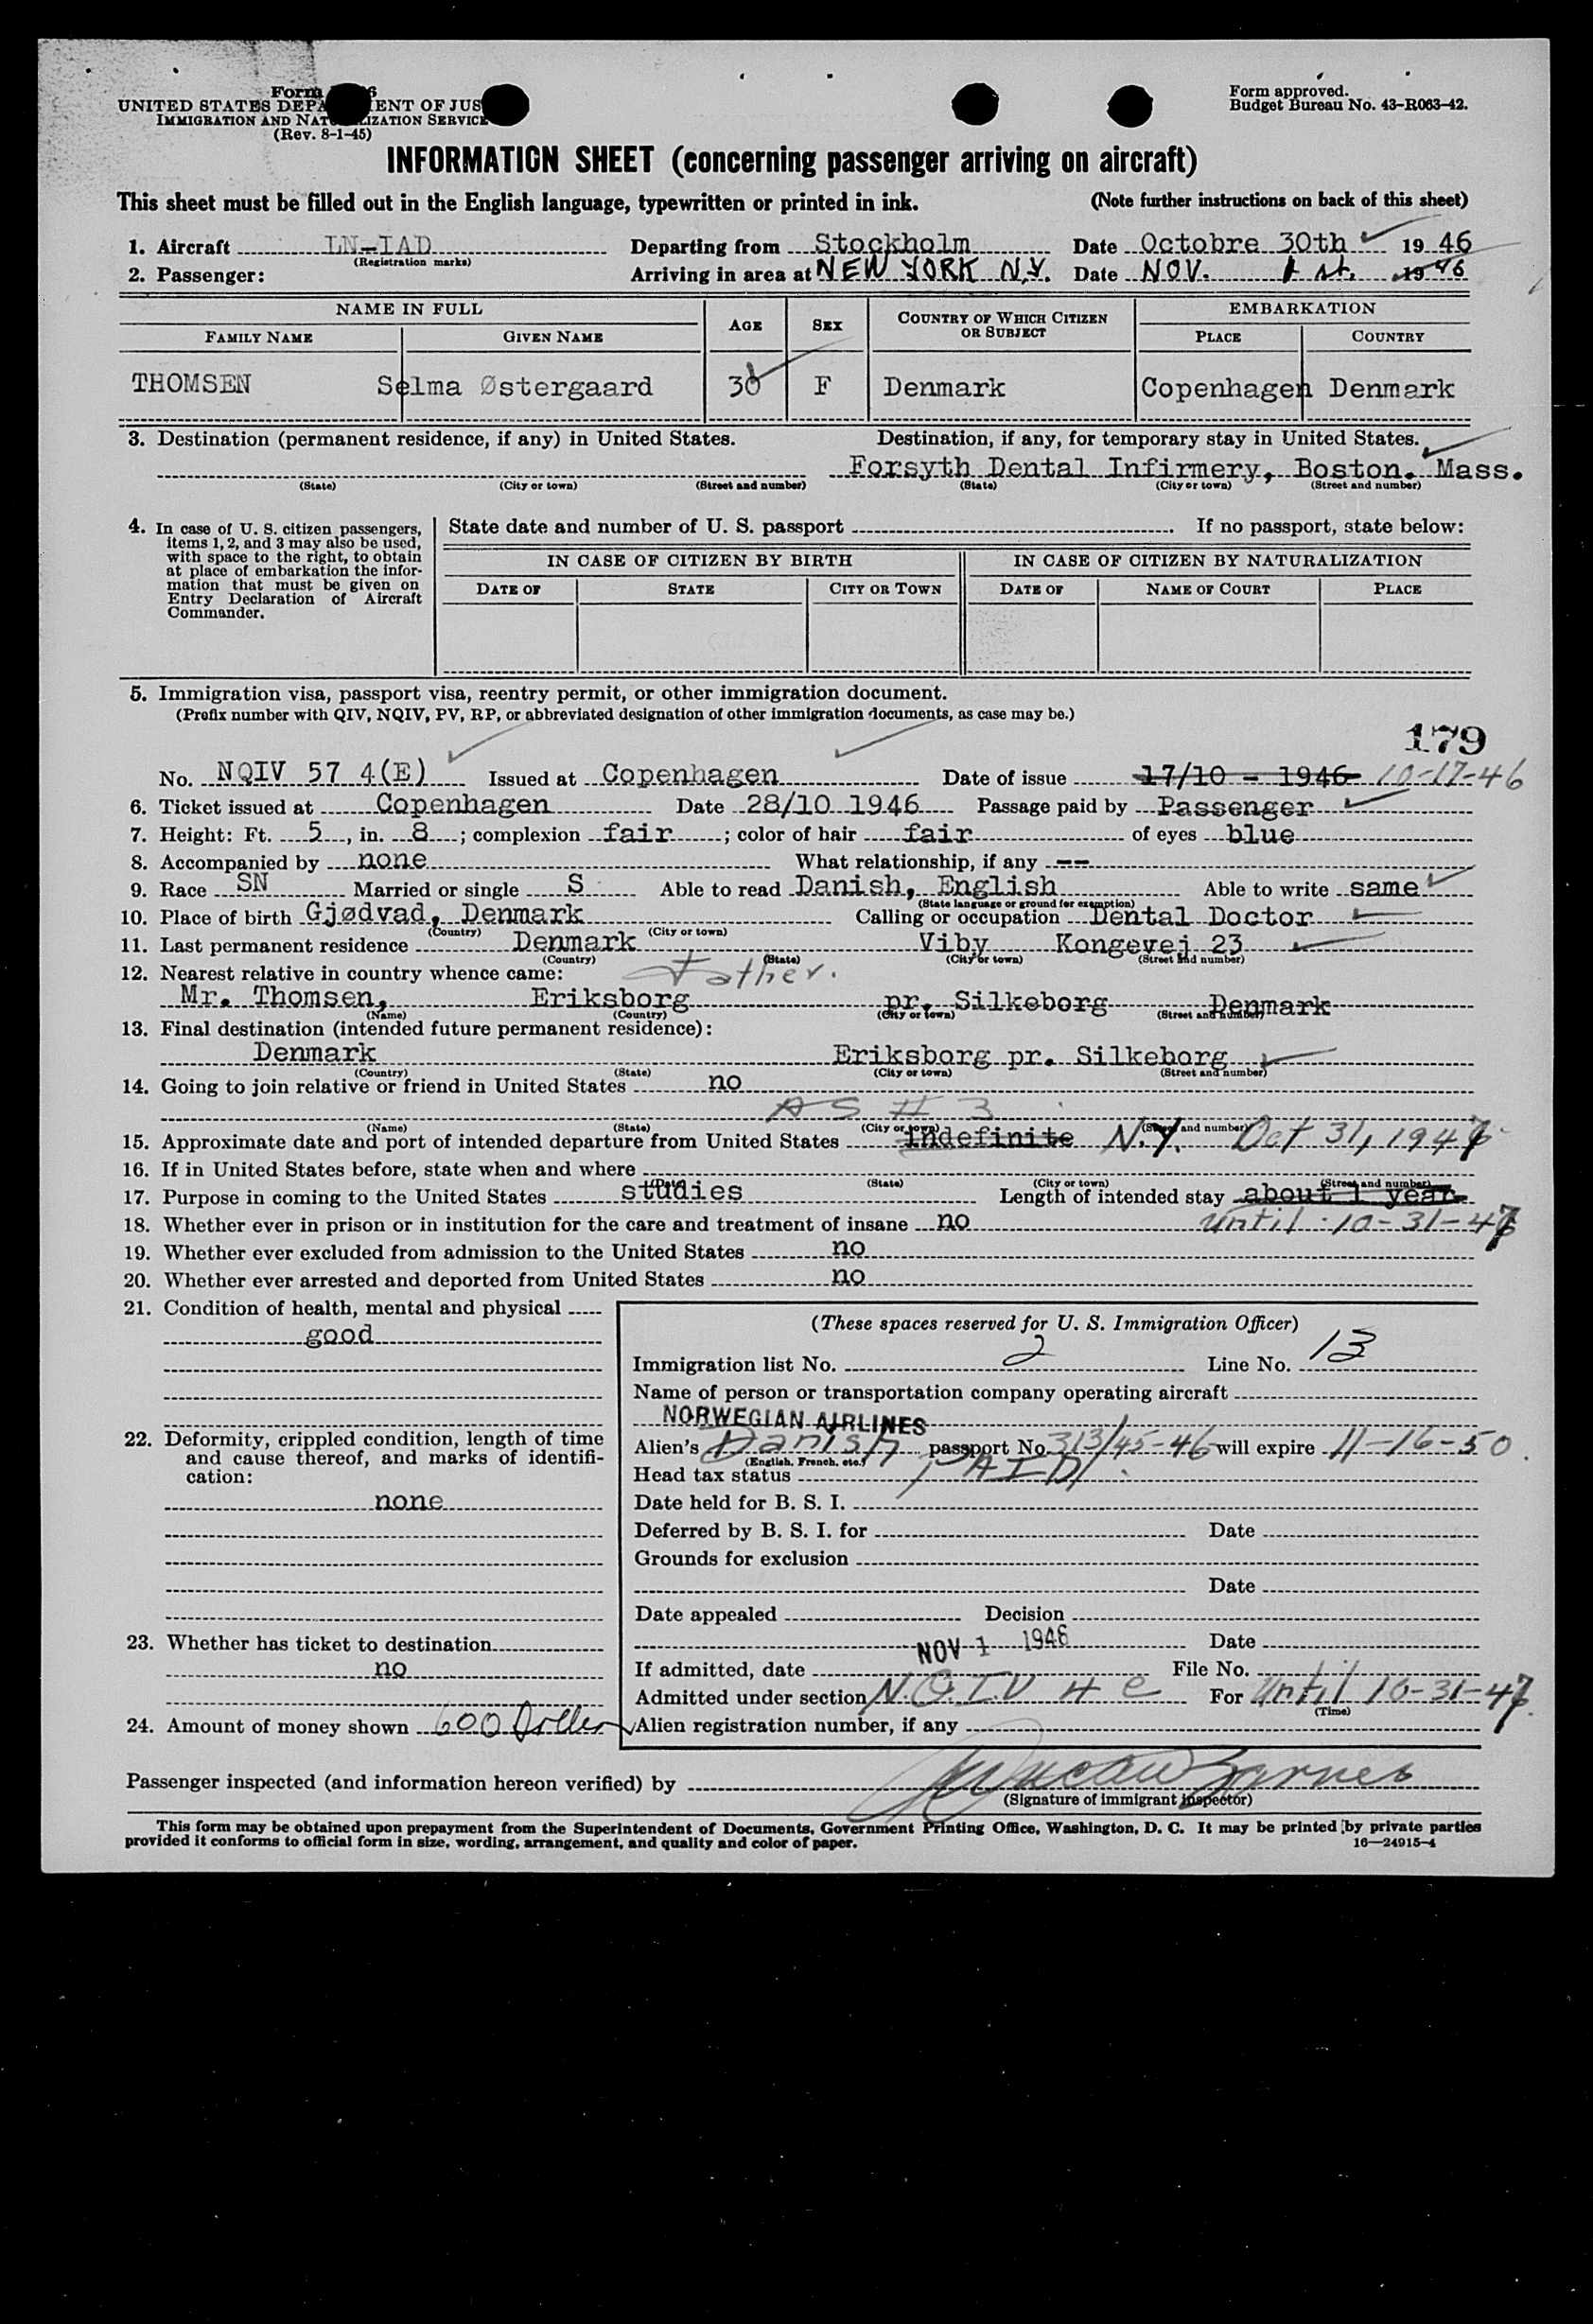 Form 6
UNITED STATES DEPA ENT OF JUS
IMMIGRATION AND NAT IZATION SERVICE
(Rev. 8-1-45)
Form approved.
Budget Bureau No. 43-R063-42.
INFORMATION SHEET (concerning passenger arriving on aircraft)
This sheet must be filled out in the English language, typewritten or printed in ink. (Note further instructions on back of this sheet)
1. Aircraft LN-IAD Departing from Stockholm Date Octobre 30th 1946
(Registration marks)
2. Passenger: Arriving in area at NEW YORK N.Y. Date NOV. 1 st. 1946
NAME IN FULL AGE SEX COUNTRY OF WHICH CITIZEN OR SUBJECT EMBARKATION
FAMILY NAME GIVEN NAME PLACE COUNTRY
THOMSEN Selma Østergaard 30 F Denmark Copenhagen Denmark
3. Destination (permanent residence, if any) in United States. Destination, if any, for temporary stay in United States.
Forsyth Dental Infirmery, Boston. Mass.
(State) (City or town) (Street and number) (State) (City or town) (Street and number)
4. In case of U. S. citizen passengers, items 1, 2, and 3 may also be used, with space to the right, to obtain at place of embarkation the information that must be given on Entry Declaration of Aircraft Commander.
State date and number of U. S. passport If no passport, state below:
IN CASE OF CITIZEN BY BIRTH IN CASE OF CITIZEN BY NATURALIZATION
DATE OF STATE CITY OR TOWN DATE OF NAME OF COURT PLACE
5. Immigration visa, passport visa, reentry permit, or other immigration document.
(Prefix number with QIV, NQIV, PV, RP, or abbreviated designation of other immigration documents, as case may be.)
179
No. NQIV 57 4(E) Issued at Copenhagen Date of issue 17/10 - 1946 10-17-46
6. Ticket issued at Copenhagen Date 28/10 1946 Passage paid by Passenger
7. Height: Ft. 5, in. 8; complexion fair; color of hair fair of eyes blue
8. Accompanied by none What relationship, if any --
9. Race SN Married or single S Able to read Danish, English Able to write same
(State language or ground for exemption)
10. Place of birth Gjødvad, Denmark Calling or occupation Dental Doctor
(Country) (City or town)
11. Last permanent residence Denmark Viby Kongevej 23
(Country) (State) (City or town) (Street and number)
12. Nearest relative in country whence came: Father.
Mr. Thomsen, Eriksborg pr. Silkeborg Denmark
(Name) (Country) (City or town) (Street and number)
13. Final destination (intended future permanent residence):
Denmark Eriksborg pr. Silkeborg
(Country) (State) (City or town) (Street and number)
14. Going to join relative or friend in United States no
AS # 3
(Name) (State) (City or town) (Street and number)
15. Approximate date and port of intended departure from United States Indefinite N.Y. Oct 31, 1947
16. If in United States before, state when and where
(State) (City or town) (Street and number)
17. Purpose in coming to the United States studies Length of intended stay about 1 year
18. Whether ever in prison or in institution for the care and treatment of insane no until 10-31-47
19. Whether ever excluded from admission to the United States no
20. Whether ever arrested and deported from United States no
21. Condition of health, mental and physical
good
22. Deformity, crippled condition, length of time and cause thereof, and marks of identification:
none
23. Whether has ticket to destination
no
24. Amount of money shown 600 Doller
(These spaces reserved for U. S. Immigration Officer)
Immigration list No. 2 Line No. 13
Name of person or transportation company operating aircraft
NORWEGIAN AIRLINES
Alien's Danish passport No. 313/45-46 will expire 11-16-50
(English, French, etc.)
Head tax status PAID
Date held for B. S. I.
Deferred by B. S. I. for Date
Grounds for exclusion
Date
Date appealed Decision
NOV 1 1946 Date
If admitted, date File No.
Admitted under section N.Q.I.V 4 e For until 10-31-47
(Time)
Alien registration number, if any
Passenger inspected (and information hereon verified) by
(Signature of immigrant inspector)
This form may be obtained upon prepayment from the Superintendent of Documents, Government Printing Office, Washington, D. C. It may be printed by private parties
provided it conforms to official form in size, wording, arrangement, and quality and color of paper. 16—24915-4